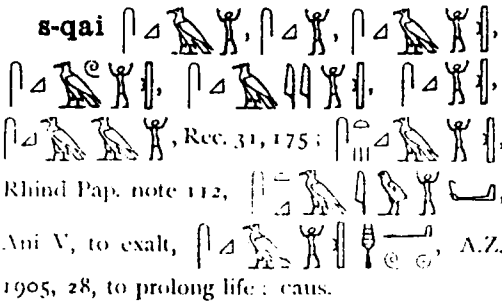 s-qai 𓋴𓈎𓄿𓀠, 𓋴𓈎𓀠, 𓋴𓈎𓄿𓀠𓏛,
𓋴𓈎𓄿𓏲𓀠𓏛, 𓋴𓈎𓄿𓇌𓀠𓏛, 𓋴𓈎𓀠𓏛,
𓋴𓈎𓄿𓄿𓀠, Rec. 31, 175 ;
Rhind Pap. note 112,
Ani V, to exalt, A.Z.
1905, 28, to prolong life ; caus.